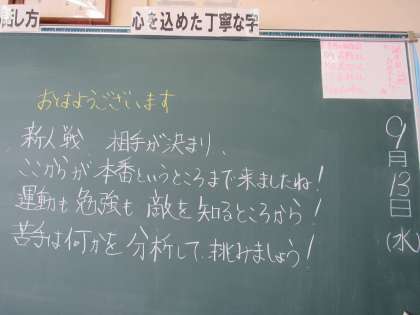 話し方
心を込めた丁寧な字
おはようございます
新人戦 相手が決まり、
ここからが本番というところまで来ましたね!
運動も勉強も敵を知るところから!
苦手は何かを分析して挑みましょう!
9月13日(水)